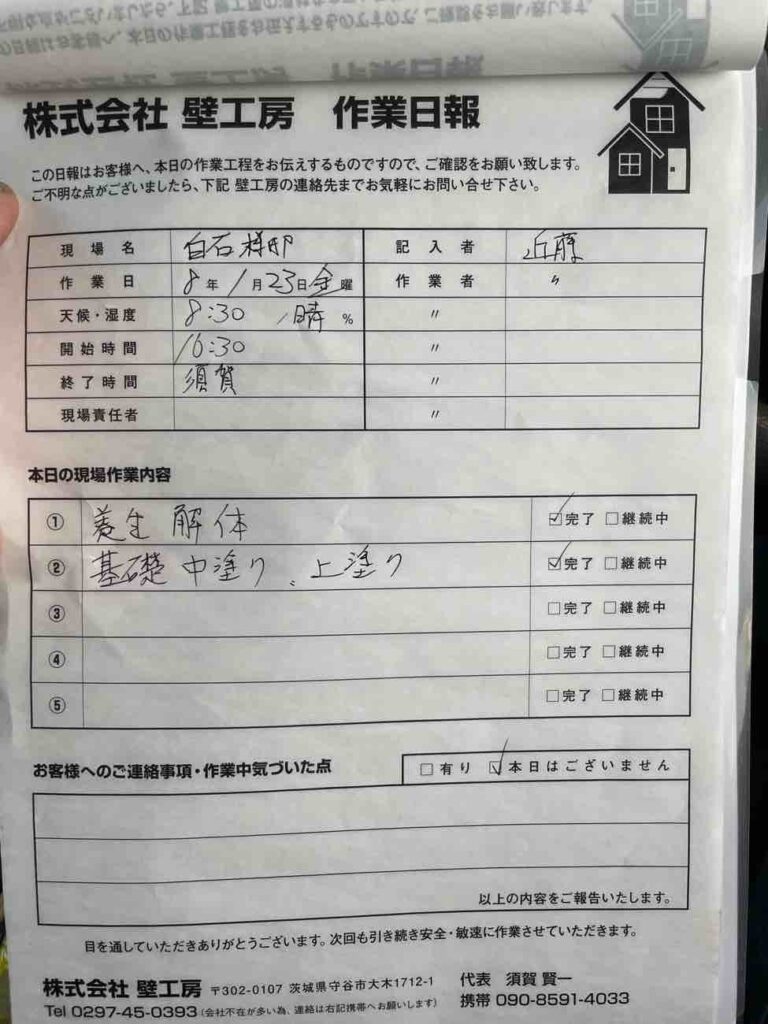 株式会社 壁工房 作業日報
この日報はお客様へ、本日の作業工程をお伝えするものですので、ご確認をお願い致します。
ご不明な点がございましたら、下記 壁工房の連絡先までお気軽にお問い合せ下さい。
現場名 白石様邸 記入者 近藤
作業日 8年 1月23日金曜 作業者 〃
天候・湿度 8:30 /晴 % 〃
開始時間 16:30 〃
終了時間 須賀 〃
現場責任者 〃
本日の現場作業内容
① 養生 解体 ☑完了 □継続中
② 基礎 中塗り、上塗り ☑完了 □継続中
③ □完了 □継続中
④ □完了 □継続中
⑤ □完了 □継続中
お客様へのご連絡事項・作業中気づいた点 □有り ☑本日はございません
以上の内容をご報告いたします。
目を通していただきありがとうございます。次回も引き続き安全・敏速に作業させていただきます。
株式会社 壁工房 〒302-0107 茨城県守谷市大木1712-1 代表 須賀 賢一
Tel 0297-45-0393 (会社不在が多い為、連絡は右記携帯へお願いします) 携帯 090-8591-4033